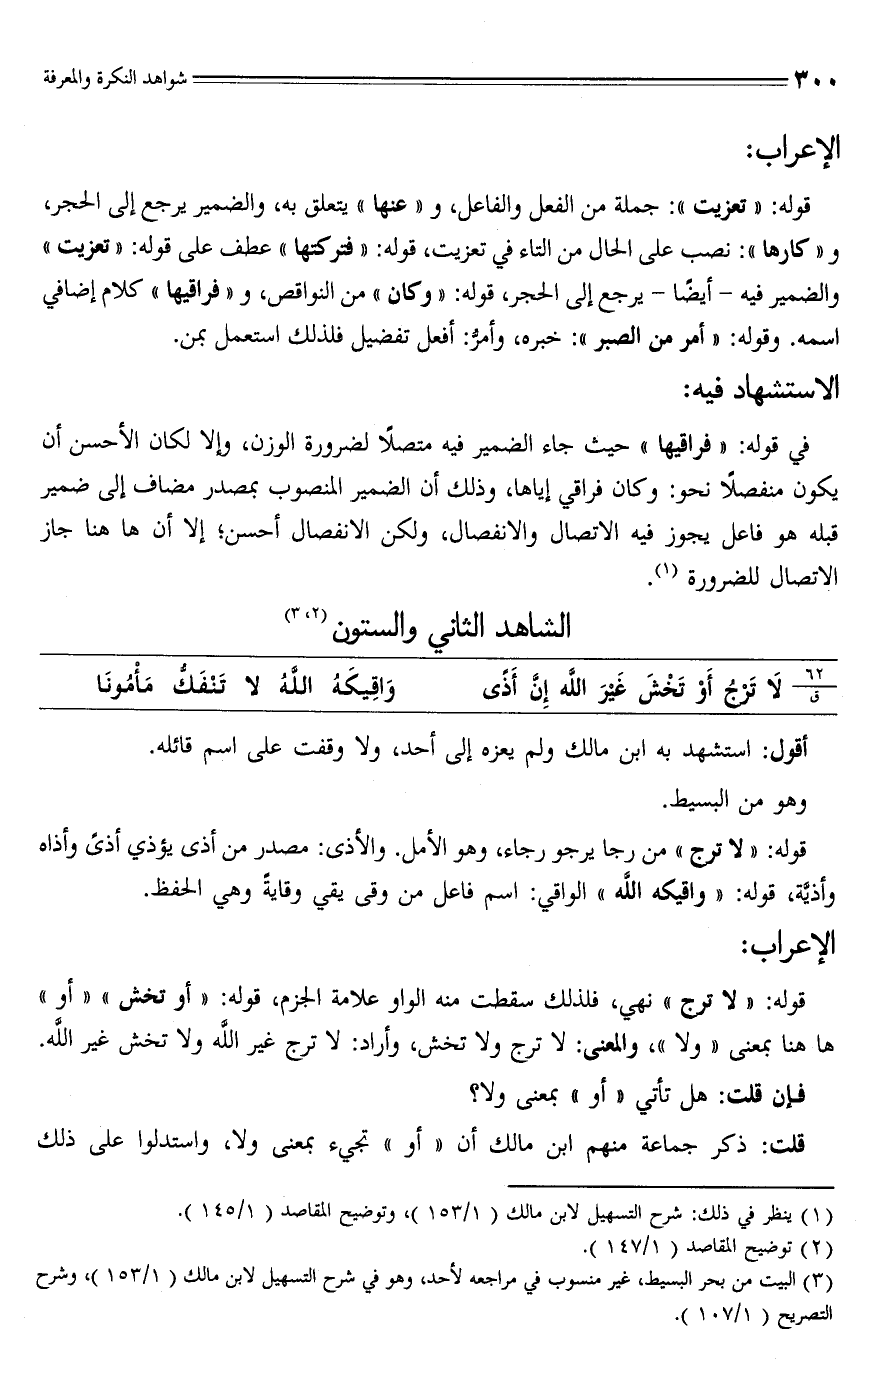 ٣٠٠ شواهد النكرة والمعرفة
الإعراب:
قوله: « تعزيت »: جملة من الفعل والفاعل، و « عنها » يتعلق به، والضمير يرجع إلى الحجر،
و « كارها »: نصب على الحال من التاء في تعزيت، قوله: « فتركتها » عطف على قوله: « تعزيت »
والضمير فيه - أيضًا - يرجع إلى الحجر، قوله: « وكان » من النواقص، و « فراقيها » كلام إضافي
اسمه. وقوله: « أمر من الصبر »: خبره، وأمرُّ: أفعل تفضيل فلذلك استعمل بمن.
الاستشهاد فيه:
في قوله: « فراقيها » حيث جاء الضمير فيه متصلًا لضرورة الوزن، وإلا لكان الأحسن أن
يكون منفصلًا نحو: وكان فراقي إياها، وذلك أن الضمير المنصوب بمصدر مضاف إلى ضمير
قبله هو فاعل يجوز فيه الاتصال والانفصال، ولكن الانفصال أحسن؛ إلا أن ها هنا جاز
الاتصال للضرورة (١).
الشاهد الثاني والستون (٢، ٣)
٦٢/ق لَا تَرْجُ أَوْ تَخْشَ غَيْرَ اللَّه إِنَّ أَذًى وَاقِيكَهُ اللَّهُ لا تَنْفَكُّ مَأْمُونَا
أقول: استشهد به ابن مالك ولم يعزه إلى أحد، ولا وقفت على اسم قائله.
وهو من البسيط.
قوله: « لا ترج » من رجا يرجو رجاء، وهو الأمل. والأذى: مصدر من أذى يؤذي أذىً وأذاه
وأذيَّة، قوله: « واقيكه اللَّه » الواقي: اسم فاعل من وقى يقي وقايةً وهي الحفظ.
الإعراب:
قوله: « لا ترج » نهي، فلذلك سقطت منه الواو علامة الجزم، قوله: « أو تخش » « أو »
ها هنا بمعنى « ولا »، والمعنى: لا ترج ولا تخش، وأراد: لا ترج غير اللَّه ولا تخش غير اللَّه.
فإن قلت: هل تأتي « أو » بمعنى ولا؟
قلت: ذكر جماعة منهم ابن مالك أن « أو » تجيء بمعنى ولا، واستدلوا على ذلك
(١) ينظر في ذلك: شرح التسهيل لابن مالك ( ١٥٣/١ )، وتوضيح المقاصد ( ١٤٥/١ ).
(٢) توضيح المقاصد ( ١٤٧/١ ).
(٣) البيت من بحر البسيط، غير منسوب في مراجعه لأحد، وهو في شرح التسهيل لابن مالك ( ١٥٣/١ )، وشرح
التصريح ( ١٠٧/١ ).